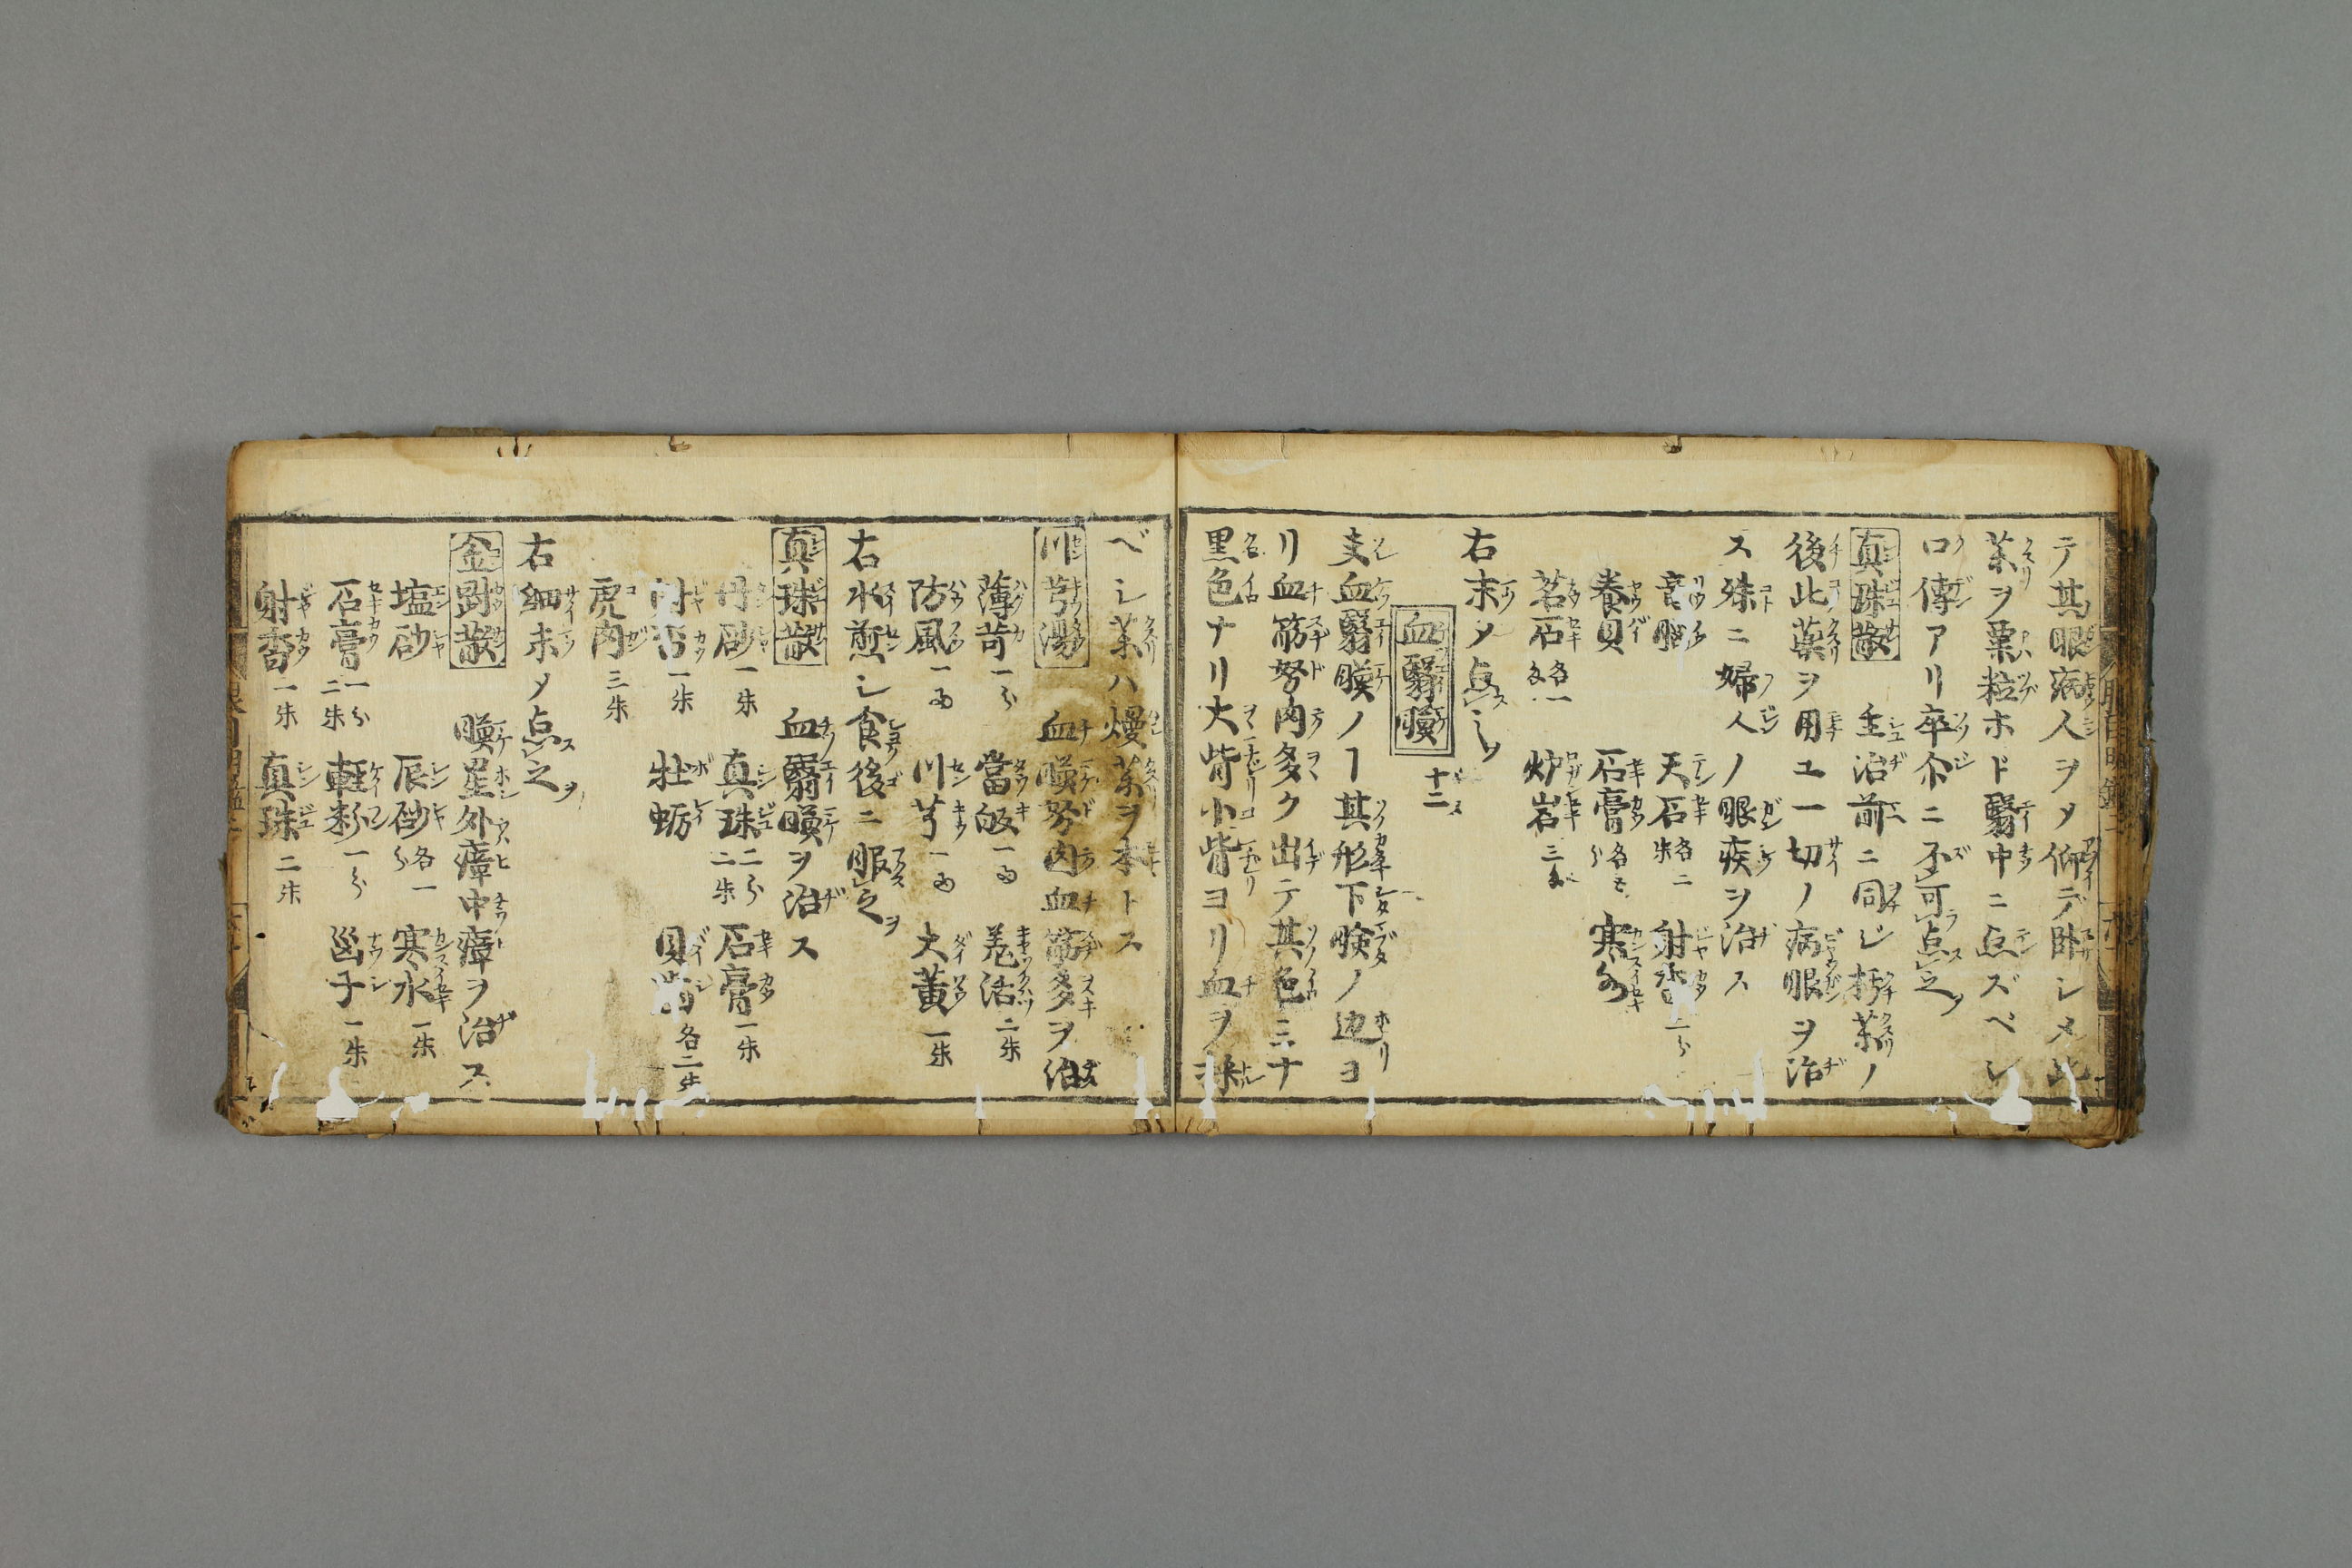 テ其眼病人ヲ〆仰デ臥シメ此
茱ヲ粟粒ホド翳中ニ点ズベシ
口傳アリ卒尒ニ不可点之
真珠散 主治前ニ同ジ朽茱ノ
後此薬ヲ用ユ一切ノ病眼ヲ治
ス殊ニ婦人ノ眼疾ヲ治ス
竜脳 天石各二朱 射香二分
養貝 石膏各七分 寒水
茗石各一匁 炉岩三分
右末〆点シツ
血翳瞙 十二
支血翳瞙ノヿ其形下瞼ノ边ヨ
リ血筋努肉多ク出テ其色ミナ
黒色ナリ大眥小眥ヨリ血ヲ採
ベシ茱ハ熳茱ヲ本トス
川芎湯 血瞙努肉血筋多ヲ治
薄苛一分 當皈一两 羗活二朱
防風一两 川芎一两 大黄一朱
右水煎シ食後ニ服之
真珠散 血翳瞙ヲ治ス
丹砂一朱 真珠二分二朱 石膏一朱
一朱 牡蛎 貝歯各二朱
虎肉三朱
右細末〆点之
金散 瞙星外瘴中瘴ヲ治ス
塩砂 辰砂各一分 寒水一朱
石膏一分二朱 軽粉一分 子一朱
射香一朱 真珠二朱